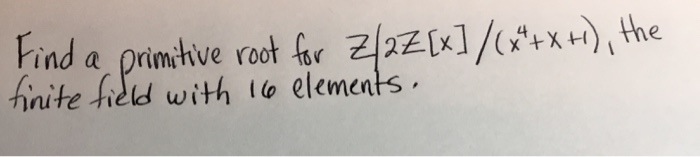 Find a primitive root for Z/2Z[x]/(x⁴+x+1), the
finite field with 16 elements.